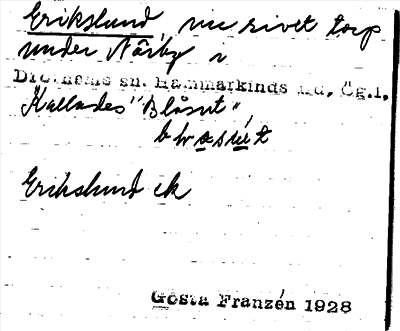 Erikslund, nu rivet torp
under Närby i
Drothems sn. Hammarkinds hd, Ög.l.
Kallades "Blåsut"
Erikslund ek
Gösta Franzén 1928